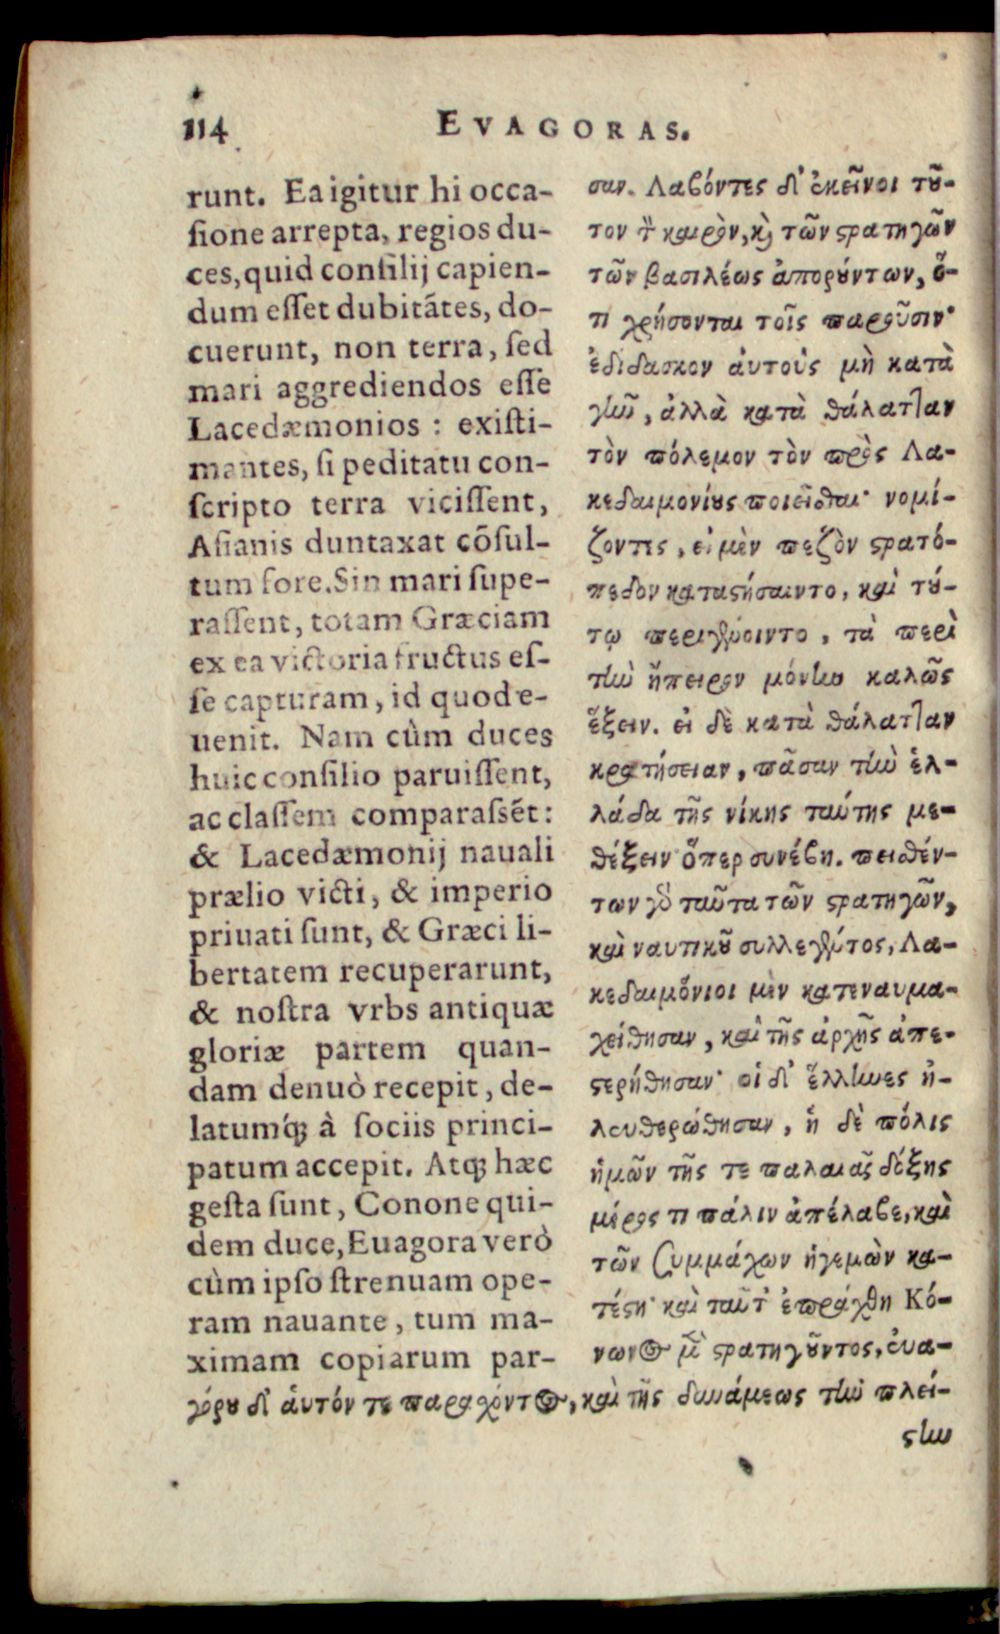 114 EVAGORAS.
runt. Ea igitur hi occa-
sione arrepta, regios du-
ces, quid consilij capien-
dum esset dubitãtes, do-
cuerunt, non terra, sed
mari aggrediendos esse
Lacedæmonios : existi-
mantes, si peditatu con-
scripto terra vicissent,
Asianis duntaxat cõsul-
tum fore. Sin mari supe-
rassent, totam Græciam
ex ea victoria fructus es-
se capturam, id quod e-
uenit. Nam cùm duces
huic consilio paruissent,
ac classem comparassẽt:
& Lacedæmonij nauali
prælio victi, & imperio
priuati sunt, & Græci li-
bertatem recuperarunt,
& nostra vrbs antiquæ
gloriæ partem quan-
dam denuò recepit, de-
latumq́; à sociis princi-
patum accepit. Atq; hæc
gesta sunt, Conone qui-
dem duce, Euagora verò
cùm ipso strenuam ope-
ram nauante, tum ma-
ximam copiarum par-
σαν. Λαβόντες δ' ἐκεῖνοι τοῦ-
τον τὸν καιρὸν, καὶ τῶν στρατηγῶν
τῶν βασιλέως ἀπορούντων, ὅ-
τι χρήσονται τοῖς παροῦσιν·
ἐδίδασκον ἀυτοὺς μὴ κατὰ
γῆν, ἀλλὰ κατὰ θάλατταν
τὸν πόλεμον τὸν πρὸς Λα-
κεδαιμονίους ποιεῖσθαι· νομί-
ζοντες, εἰ μὲν πεζὸν στρατό-
πεδον καταστήσαιντο, καὶ τού-
τῳ περιγένοιντο, τὰ περὶ
τὴν ἤπειρον μόνην καλῶς
ἕξειν. εἰ δὲ κατὰ θάλατταν
κρατήσειαν, πᾶσαν τὴν ἑλ-
λάδα τῆς νίκης ταύτης με-
θέξειν ὅπερ συνέβη. πεισθέν-
των γὸ ταῦτα τῶν στρατηγῶν,
καὶ ναυτικοῦ συλλεγέντος, Λα-
κεδαιμόνιοι μὲν κατεναυμα-
χείθησαν, καὶ τῆς ἀρχῆς ἀπε-
στερήθησαν· οἱ δ' ἕλληνες ἠ-
λευθερώθησαν, ἡ δὲ πόλις
ἡμῶν τῆς τε παλαιᾶς δόξης
μέρος τι πάλιν ἀπέλαβε, καὶ
τῶν συμμάχων ἡγεμὼν κα-
τέστη· καὶ ταῦτ' ἐπράχθη Κό-
νωνος μὲν στρατηγοῦντος, ἐυα-
γόρου δ' ἁυτόν τε παρασχόντος, καὶ τῆς δυνάμεως τὴν πλεί-
στην